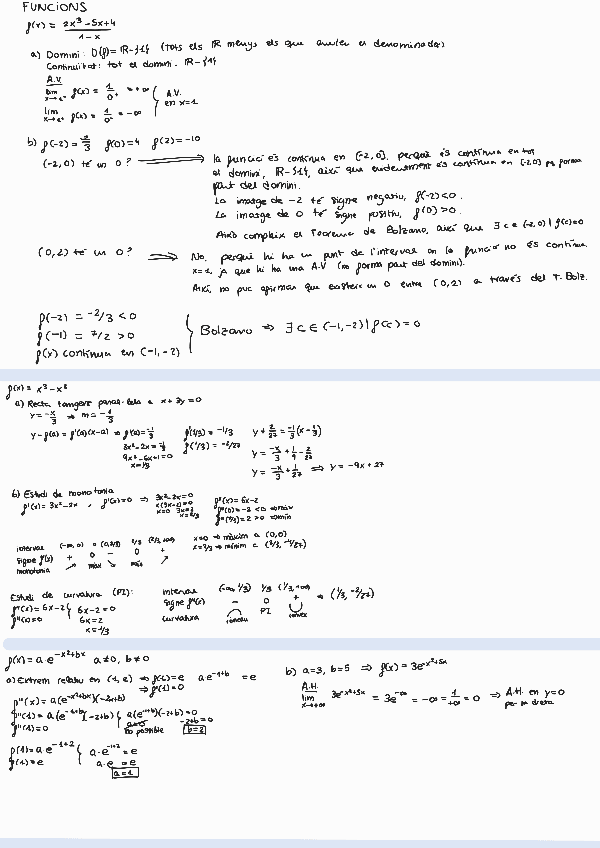 FUNCIONS
f(x) = 2x³ - 5x + 4 / 1 - x
a) Domini: D(f) = ℝ - {1} (tots els ℝ menys els que anulen el denominador)
Continuïtat: tot el domini. ℝ - {1}
A.V.
lim x→1⁻ f(x) = 1/0⁺ = +∞
lim x→1⁺ f(x) = 1/0⁻ = -∞
A.V. en x=1
b) f(-2) = -2/3 f(0) = 4 f(2) = -10
(-2,0) té un 0? ⟹ la funció és contínua en [-2,0], perquè és contínua en tot
el domini, ℝ - {1}, així que evidentment és contínua en [-2,0] pq forma
part del domini.
La imatge de -2 té signe negatiu, f(-2) < 0.
La imatge de 0 té signe positiu, f(0) > 0.
Això compleix el Teorema de Bolzano, així que ∃ c ∈ (-2,0) | f(c) = 0
(0,2) té un 0? ⟹ No, perquè hi ha un punt de l'interval on la funció no és contínua
x=1, ja que hi ha una A.V (no forma part del domini).
Així, no puc afirmar que existeix un 0 entre (0,2) a través del T. Bolz.
f(-2) = -2/3 < 0
f(-1) = 7/2 > 0
f(x) contínua en (-1,-2)
Bolzano ⟹ ∃ c ∈ (-1,-2) | f(c) = 0
a) Recta tangent paral·lela a x + 3y = 0
y = -x/3 ⟹ m = -1/3
y - f(a) = f'(a)(x-a) ⟹ f'(a) = -1/3
3x² - 2x = -1/3
9x² - 6x + 1 = 0
x = 1/3
f'(1/3) = -1/3
f(1/3) = -2/27
y + 2/27 = -1/3 (x - 1/3)
y = -x/3 + 1/9 - 2/27
y = -x/3 + 1/27 ⟹ y = -9x + 27
b) Estudi de monotonia
f'(x) = 3x² - 2x, f'(x) = 0 ⟹ 3x² - 2x = 0
x(3x-2) = 0
x=0 3x=2
x=2/3
f''(x) = 6x - 2
f''(0) = -2 < 0 ⟹ màx
f''(2/3) = 2 > 0 ⟹ mín
interval (-∞,0) 0 (0,2/3) 2/3 (2/3,+∞)
signe f'(x) + 0 - 0 +
monotonia ↗ màx ↘ mín ↗
x=0 ⟹ màxim a (0,0)
x=2/3 ⟹ mínim a (2/3, -4/27)
Estudi de curvatura (PI):
f''(x) = 6x - 2
f''(x) = 0
6x - 2 = 0
6x = 2
x = 1/3
interval (-∞,1/3) 1/3 (1/3,+∞)
signe f''(x) - 0 +
curvatura PI
⟹ (1/3, -2/27)
f(x) = a·e^(-x²+bx) a≠0, b≠0
a) Extrem relatiu en (1,e) ⟹ f(1) = e a·e^(-1+b) = e
⟹ f'(1) = 0
f'(x) = a(e^(-x²+bx))(-2x+b)
f'(1) = a(e^(-1+b))(-2+b)
f'(1) = 0
a(e^(-1+b))(-2+b) = 0
No possible
-2+b = 0
b = 2
f(1) = a·e^(-1+2)
f(1) = e
a·e^(-1+2) = e
a·e = e
a = 1
b) a=3, b=5 ⟹ f(x) = 3e^(-x²+5x)
A.H.
lim x→+∞ 3e^(-x²+5x) = 3e^(-∞) = -∞ = 1/+∞ = 0 ⟹ A.H. en y=0
per la dreta